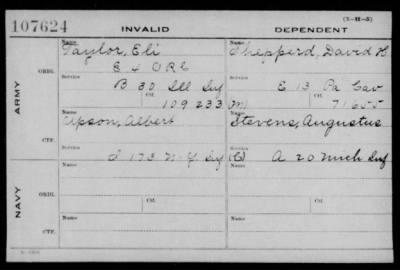 (3-H-5)
107624 INVALID DEPENDENT
ARMY
ORIG.
Name Taylor, Eli
E 4 O R C
Service B 30 Ill Inf
Ctf. 109 233
Name Shepperd, David H
Service E 13 Pa Cav
Ctf. 71655
CTF.
Name Upson, Albert
Service I 173 N-Y Inf
Name Stevens, Augustus
Service A 20 Mich Inf
NAVY
ORIG.
Name Ctf.
Name Ctf.
CTF.
Name
Name